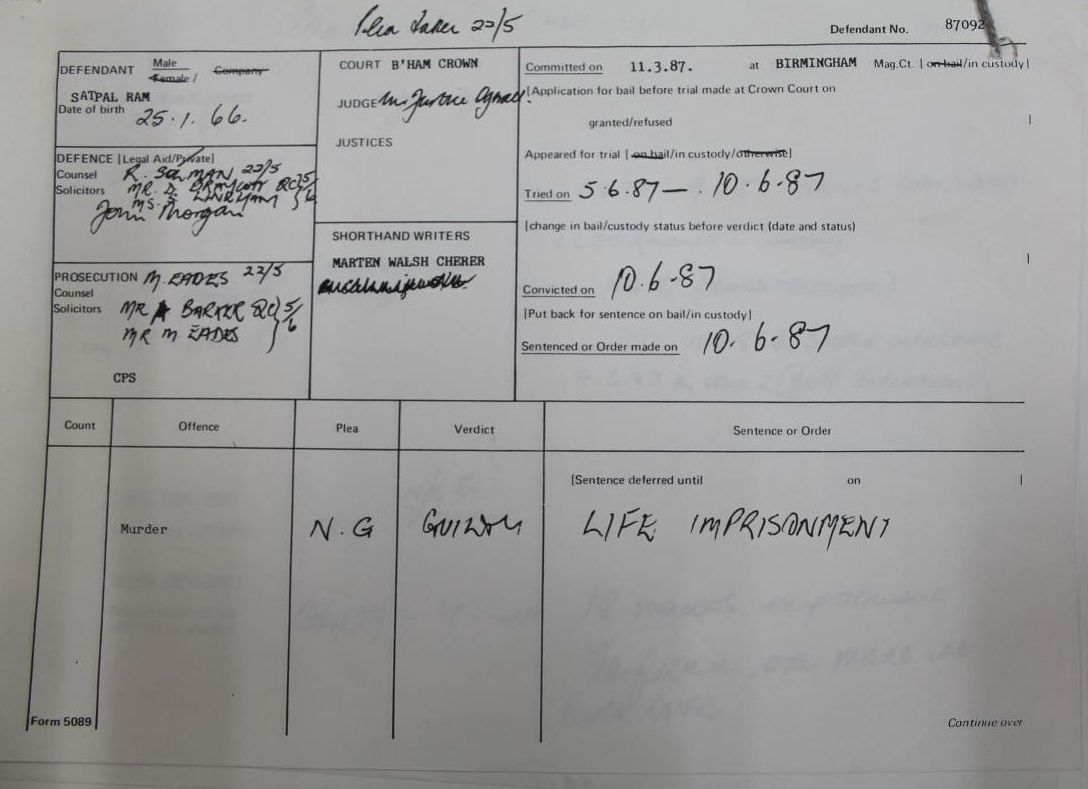 Plea taken 22/5
Defendant No. 87092
DEFENDANT Male
Female / Company
SATPAL RAM
Date of birth 25.1.66.
DEFENCE [Legal Aid/Private]
Counsel R. SOLMAN 22/5
Solicitors MR. D. DRAYCOTT QC 5/6
MS. LINEHAM
John Morgan
PROSECUTION M. EADES 22/5
Counsel
Solicitors MR A BARKER QC 5/6
MR M EADES
CPS
COURT B'HAM CROWN
JUDGE Mr Justice Ognall
JUSTICES
SHORTHAND WRITERS
MARTEN WALSH CHERER
Committed on 11.3.87. at BIRMINGHAM Mag.Ct. [on bail/in custody]
[Application for bail before trial made at Crown Court on
granted/refused ]
Appeared for trial [on bail/in custody/otherwise]
Tried on 5.6.87 — 10.6.87
[change in bail/custody status before verdict (date and status)
]
Convicted on 10.6.87
[Put back for sentence on bail/in custody]
Sentenced or Order made on 10.6.87
Count Offence Plea Verdict Sentence or Order
[Sentence deferred until on ]
Murder N.G GUILTY LIFE IMPRISONMENT
Form 5089
Continue over